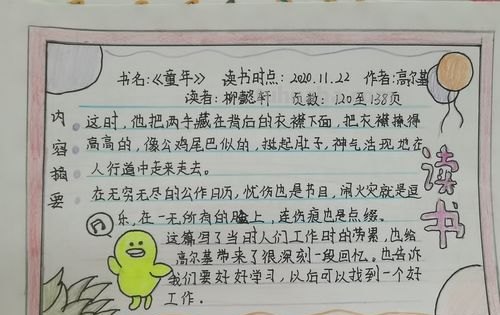 书名:《童年》 读书时点: 2020.11.22 作者:高尔基
读者: 柳懿轩 页数: 120至138页
内容摘要
这时，他把两手藏在背后的衣襟下面，把衣襟撩得
高高的，像公鸡尾巴似的，挺起肚子，神气活现地在
人行道中走来走去。
在无穷无尽的工作日历，忧伤也是节日，闹火灾就是逗
乐，在一无所有的脸上，连伤痕也是点缀。
这篇写了当时人们工作时的劳累，也给
高尔基带来了很深刻一段回忆。也告诉
我们要好好学习，以后可以找到一个好
工作.
读书